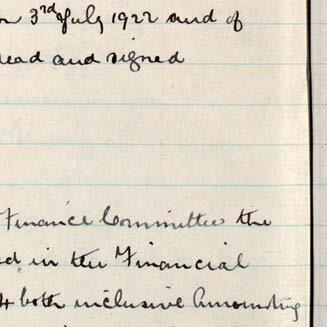 on 3rd July 1922 and of
read and signed
Finance Committee the
ed in the Financial
4 both inclusive Amounting